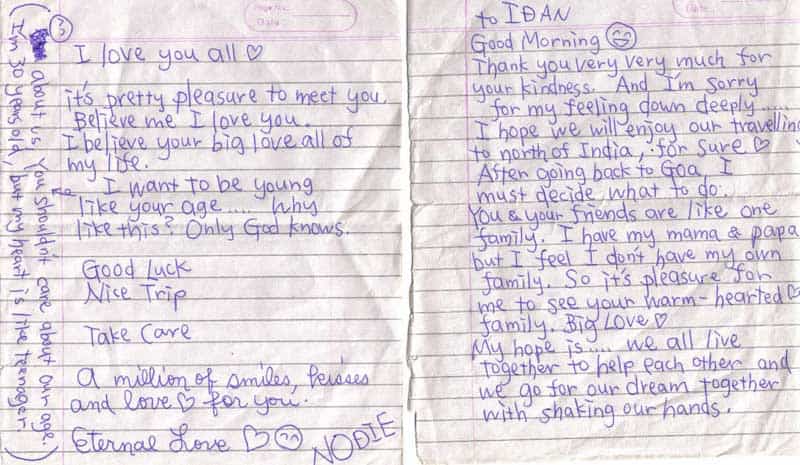 Page No.
Date
3
I love you all ♡
it's pretty pleasure to meet you.
Believe me I love you.
I believe your big love all of
my life.
I want to be young
like your age..... why
like this? Only God knows.
Good Luck
Nice Trip
Take Care
A million of smiles, kisses
and love ♡ for you.
Eternal Love ♡ ☺
NODIE
(about us. You shouldn't care about our age.
I'm 30 years old, but my heart is like teenager)
Date
to IDAN
Good Morning ☺
Thank you very very much for
your kindness. And I'm sorry
for my feeling down deeply.....
I hope we will enjoy our travelling
to north of India, for sure ♡
After going back to Goa, I
must decide what to do.
You & your friends are like one
family. I have my mama & papa
but I feel I don't have my own
family. So it's pleasure for
me to see your warm-hearted ♡
family. Big LOVE ♡
My hope is..... we all live
together to help each other and
we go for our dream together
with shaking our hands.